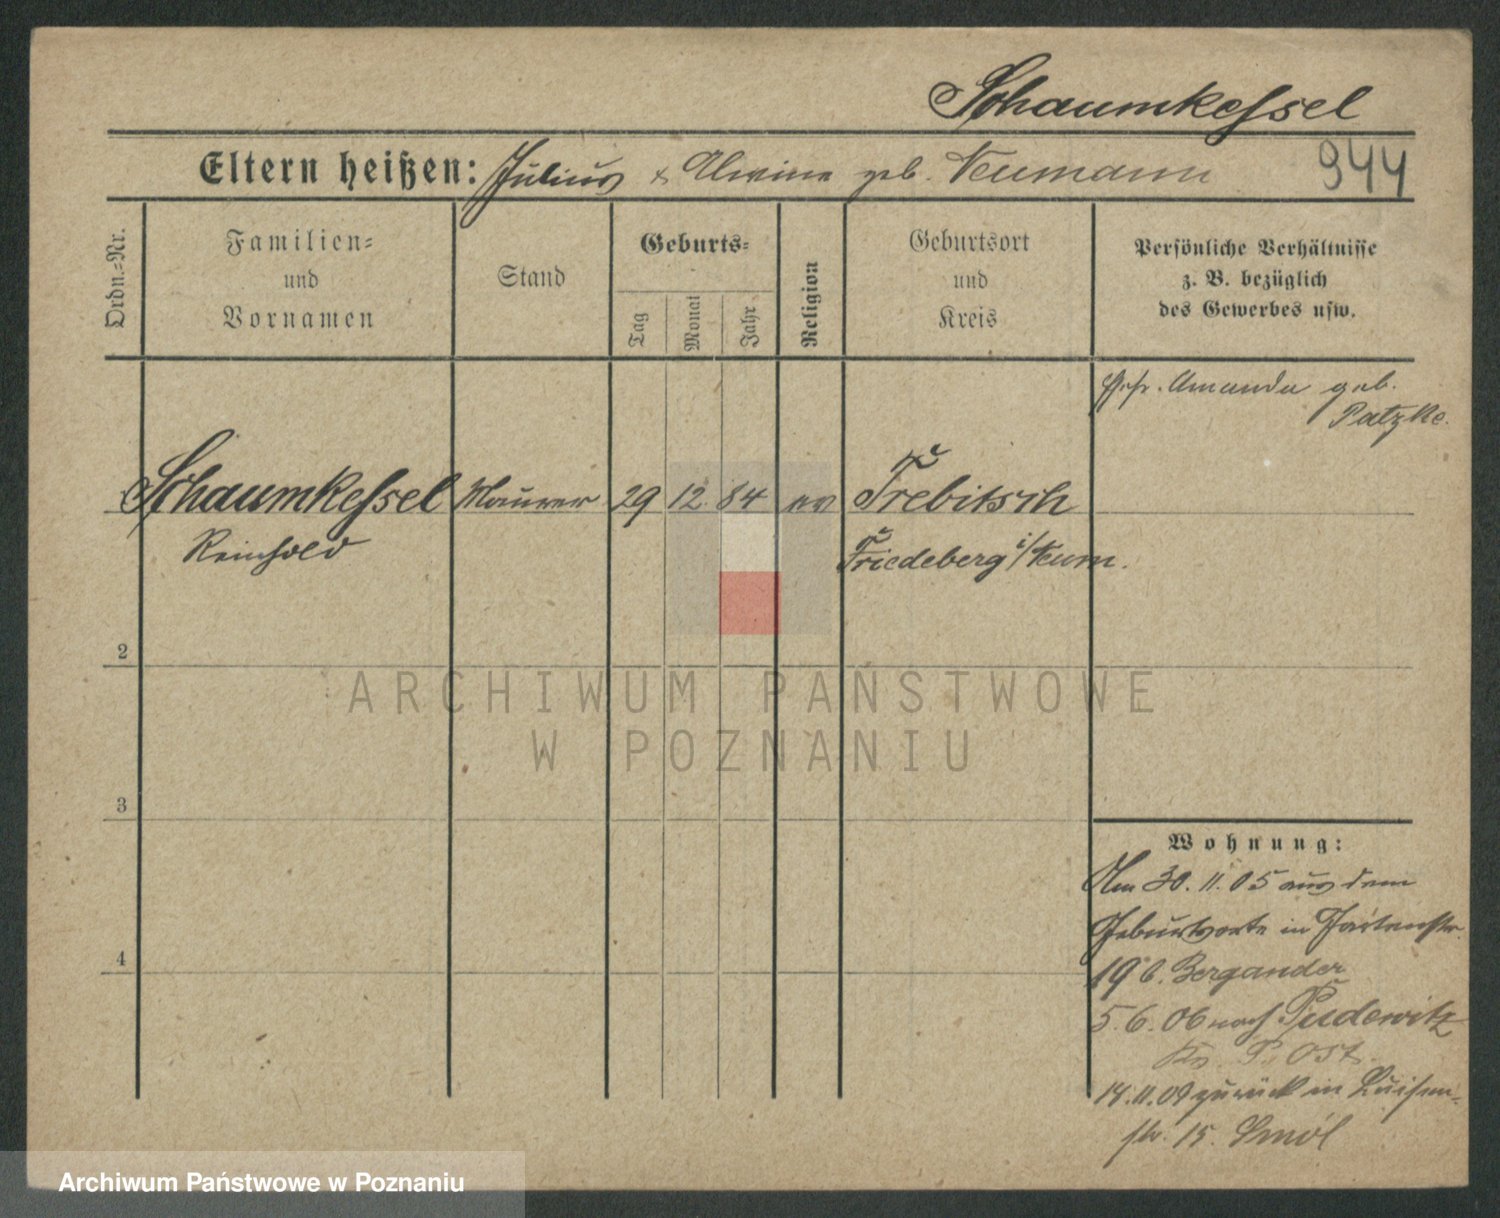 Schaumkessel
Eltern heißen: Julius & Alwine geb. Neumann 944
Ordn.-Nr.
Familien-
und
Vornamen
Stand
Geburts-
Tag
Monat
Jahr
Religion
Geburtsort
und
Kreis
Persönliche Verhältnisse
z. B. bezüglich
des Gewerbes usw.
Amanda geb.
Patzke.
Schaumkessel Maurer 29 12 84 ev Trebitsch
Reinhold
Friedeberg i/Neum.
2
3
4
Wohnung:
Am 30.11.05 aus dem
Geburtsorte in Gartenstr.
19 b. Bergander
5.6.06 nach Pudewitz
Kr. P. Ost.
14.11.09 zurück in Luisen-
str. 15.
ARCHIWUM PAŃSTWOWE
W POZNANIU
Archiwum Państwowe w Poznaniu